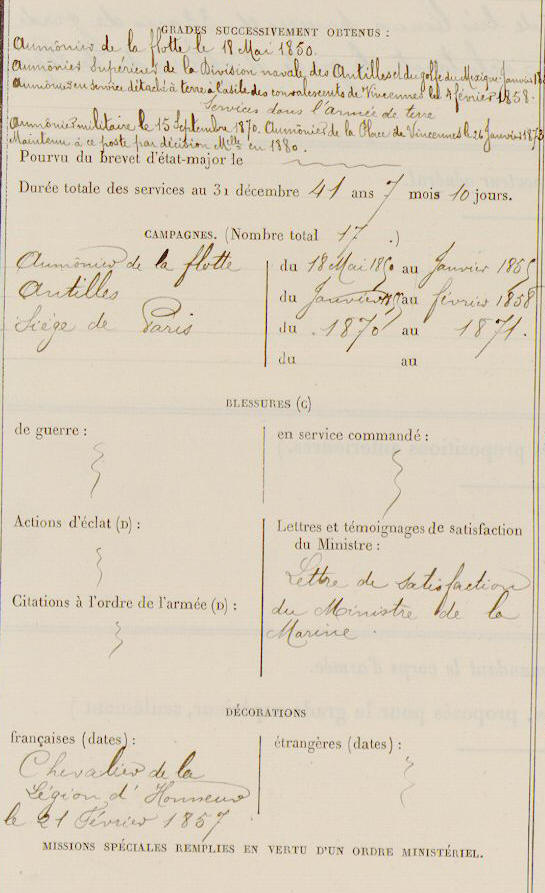 GRADES SUCCESSIVEMENT OBTENUS :
Aumônier de la flotte le 18 Mai 1850.
Aumônier Supérieur de la Division navale des Antilles et du golfe du Mexique Janvier
Aumônier en service détaché à terre à l'asile des convalescents de Vincennes le 4 février 1858.
Services dans l'Armée de terre
Aumônier militaire le 15 Septembre 1870. Aumônier de la Place de Vincennes le 26 Janvier 1873
Maintenu à ce poste par décision Mlle en 1880.
Pourvu du brevet d'état-major le
Durée totale des services au 31 décembre 41 ans 7 mois 10 jours.
CAMPAGNES. (Nombre total 17 .)
Aumônier de la flotte du 18 Mai 1850 au Janvier 1855
Antilles du Janvier au février 1858
Siége de Paris du 1870 au 1871.
du au
BLESSURES (C)
de guerre : en service commandé :
Actions d'éclat (D) : Lettres et témoignages de satisfaction
du Ministre :
Lettre de satisfaction
Citations à l'ordre de l'armée (D) : du Ministre de la
Marine
DÉCORATIONS
françaises (dates) : étrangères (dates) :
Chevalier de la
Légion d'Honneur
le 21 Février 1857
MISSIONS SPÉCIALES REMPLIES EN VERTU D'UN ORDRE MINISTÉRIEL.